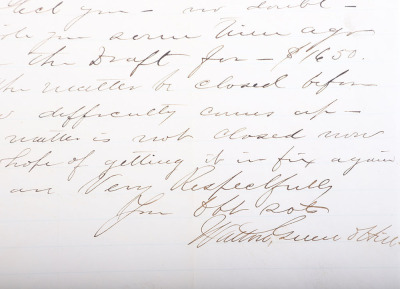 you - no doubt -
you some time ago
the Draft for - $1650.
the matter be closed before
difficulty comes up -
matter is not closed now
hope of getting it in fix again
are Very Respectfully
Your Obt Svts